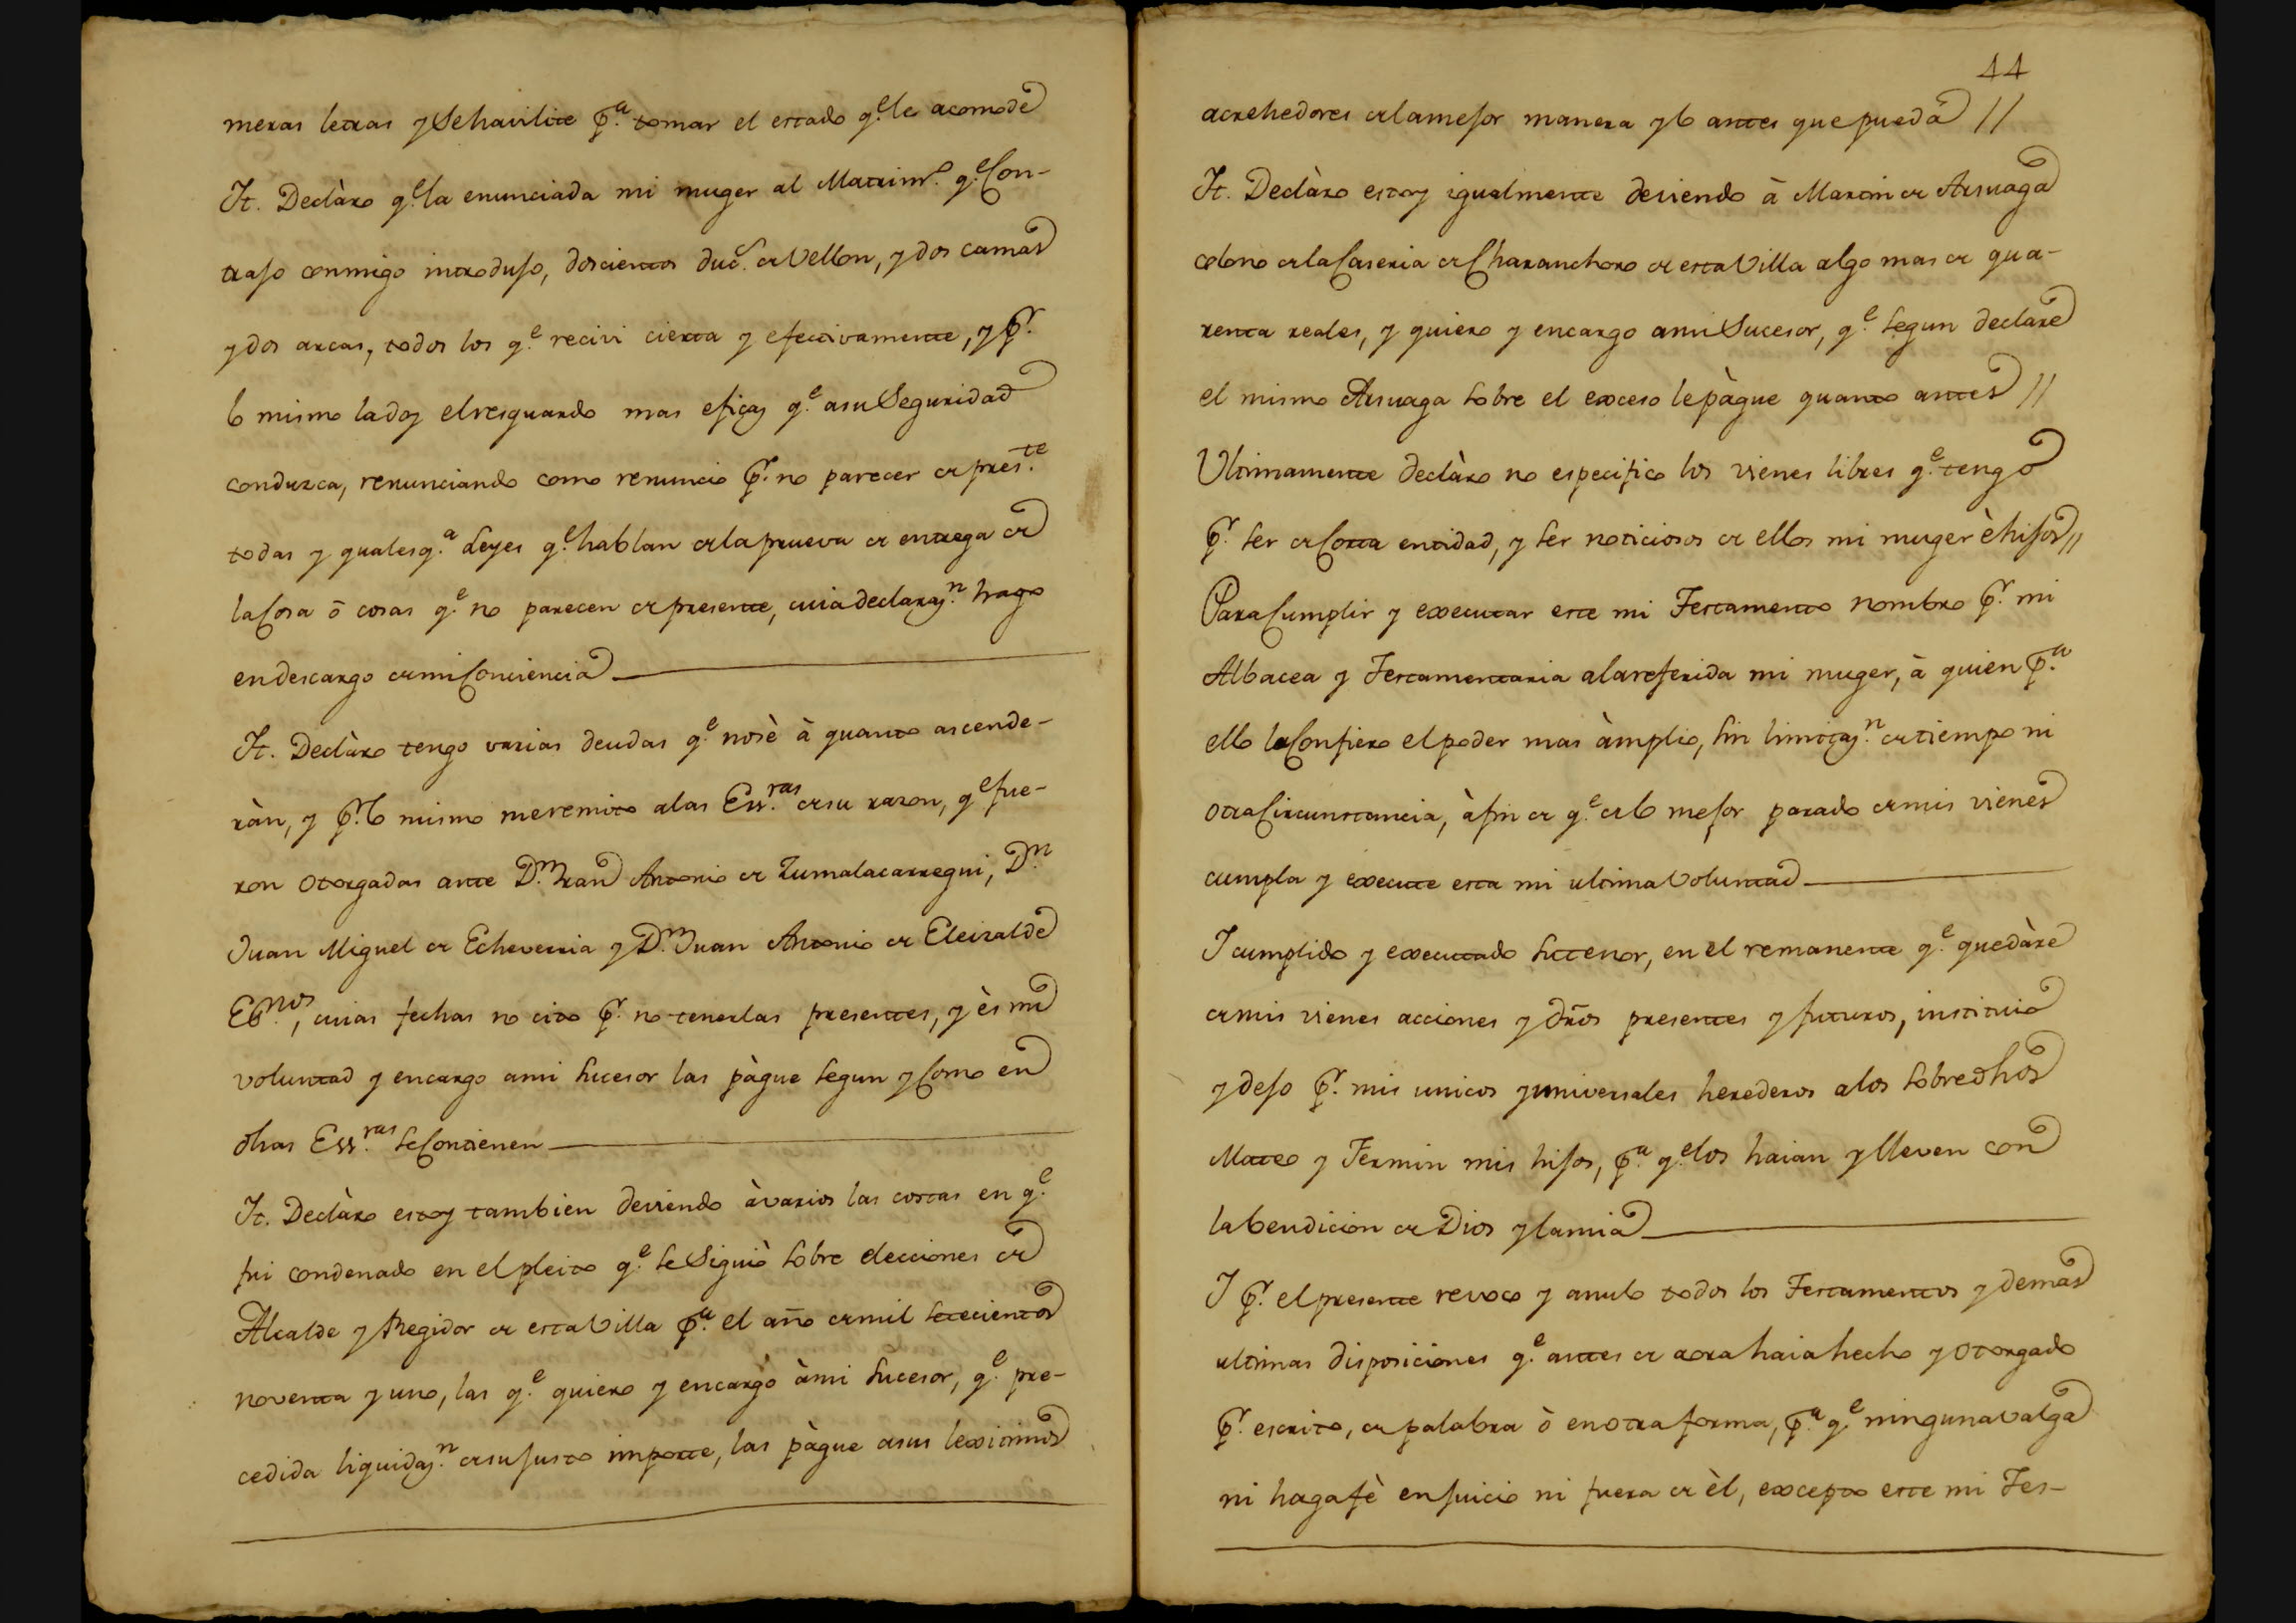 meras letras y Se havilite p.ª tomar el estado q.e le acomode
It. Declàro q.e la enunciada mi muger al Matrim.o q.e Con-
trajo conmigo introdujo, doscientos duc.s de Vellon, y dos camas
y dos arcas, todos los q.e recivi cierta y efectivamente, y p.r
lo mismo la doy el resguardo mas eficaz q.e a su Seguridad
conduzca, renunciando como renuncio p.r no parecer de pres.te
todas y qualesq.a Leyes q.e hablan de la prueva de entrega de
la Cosa ō cosas q.e no parecen de presente, cuia declaraz.n hago
en descargo de mi Conciencia
It. Declàro tengo varias deudas q.e no sè à quanto ascende-
ràn, y p.r lo mismo me remito a las Ess.ras de su razon, q.e fue-
ron otorgadas ante D.n Fran Antonio de Zumalacarregui, D.n
Juan Miguel de Echeverria y D.n Juan Antonio de Eleizalde
Es.nos, cuias fechas no cito p.r no tenerlas presentes, y ès mi
voluntad y encargo a mi Sucesor las pàgue segun y Como en
dhas Ess.ras se Contienen
It. Declàro estoy tambien deviendo à varios las costas en q.e
fui condenado en el pleito q.e se Siguiò sobre elecciones de
Alcalde y Regidor de esta Villa p.ª el año de mil setecientos
noventa y uno, las q.e quiero y encargo à mi Sucesor, q.e pre-
cedida liquidaz.n de su justo importe, las pàgue a sus lexitimos
44
acrehedores de la mejor manera y lo antes que pueda //
It. Declàro estoy igualmente deviendo à Martin de Arsuaga
colono de la Caseria de Charanchoro de esta Villa algo mas de qua-
renta reales, y quiero y encargo a mi Sucesor, q.e segun declare
el mismo Arsuaga sobre el exceso le pàgue quanto antes //
Ultimamente declàro no especifico los vienes libres q.e tengo
p.r ser de Corta entidad, y ser noticiosos de ellos mi muger è hijos //
Para Cumplir y executar este mi Testamento nombro p.r mi
Albacea y Testamentaria a la referida mi muger, à quien p.ª
ello la Confiero el poder mas àmplio, sin limitaz.n de tiempo ni
otra Circunstancia, à fin de q.e de lo mejor parado de mis vienes
cumpla y execute esta mi ultima Voluntad
I cumplido y executado su tenor, en el remanente q.e quedàre
de mis vienes acciones y drõs presentes y futuros, instituio
y dejo p.r mis unicos y universales herederos a los sobredhos
Mateo y Fermin mis hijos, p.ª q.e los haian y lleven con
la bendicion de Dios y la mia
I p.r el presente revoco y anulo todos los Testamentos y demas
ultimas disposiciones q.e antes de aora haia hecho y otorgado
p.r escrito, de palabra ò en otra forma, p.ª q.e ninguna valga
ni haga fè en juicio ni fuera de èl, excepto este mi Tes-